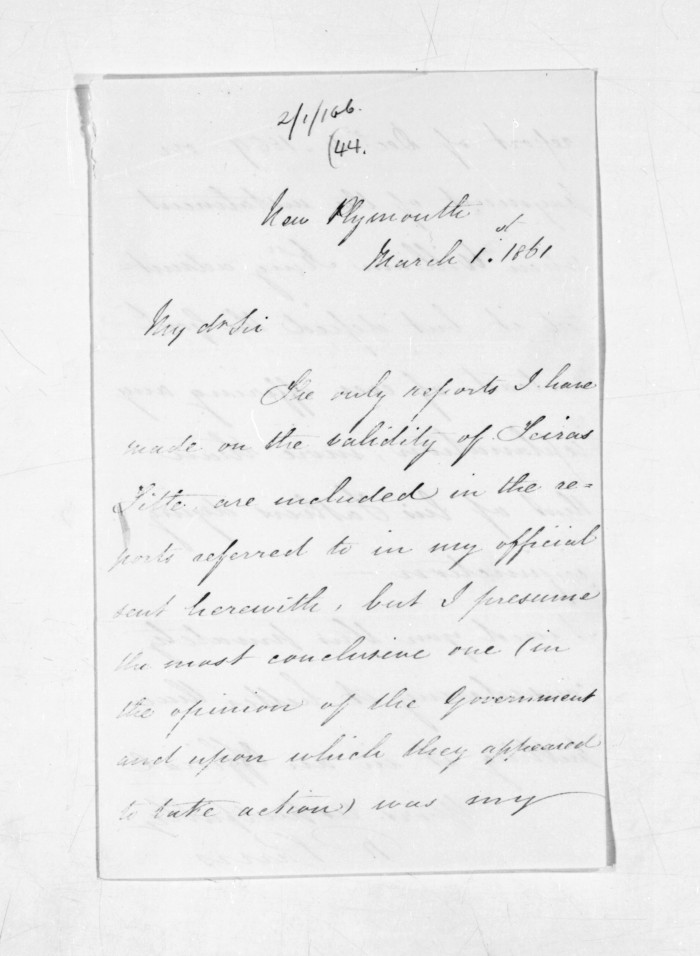 2/1/166.
(44.
New Plymouth
March 1st. 1861
My dr Sir
The only reports I have
made on the validity of Teiras
Title are included in the re=
ports referred to in my official
sent herewith, but I presume
the most conclusive one (in
the opinion of the Government
and upon which they appeared
to take action) was my